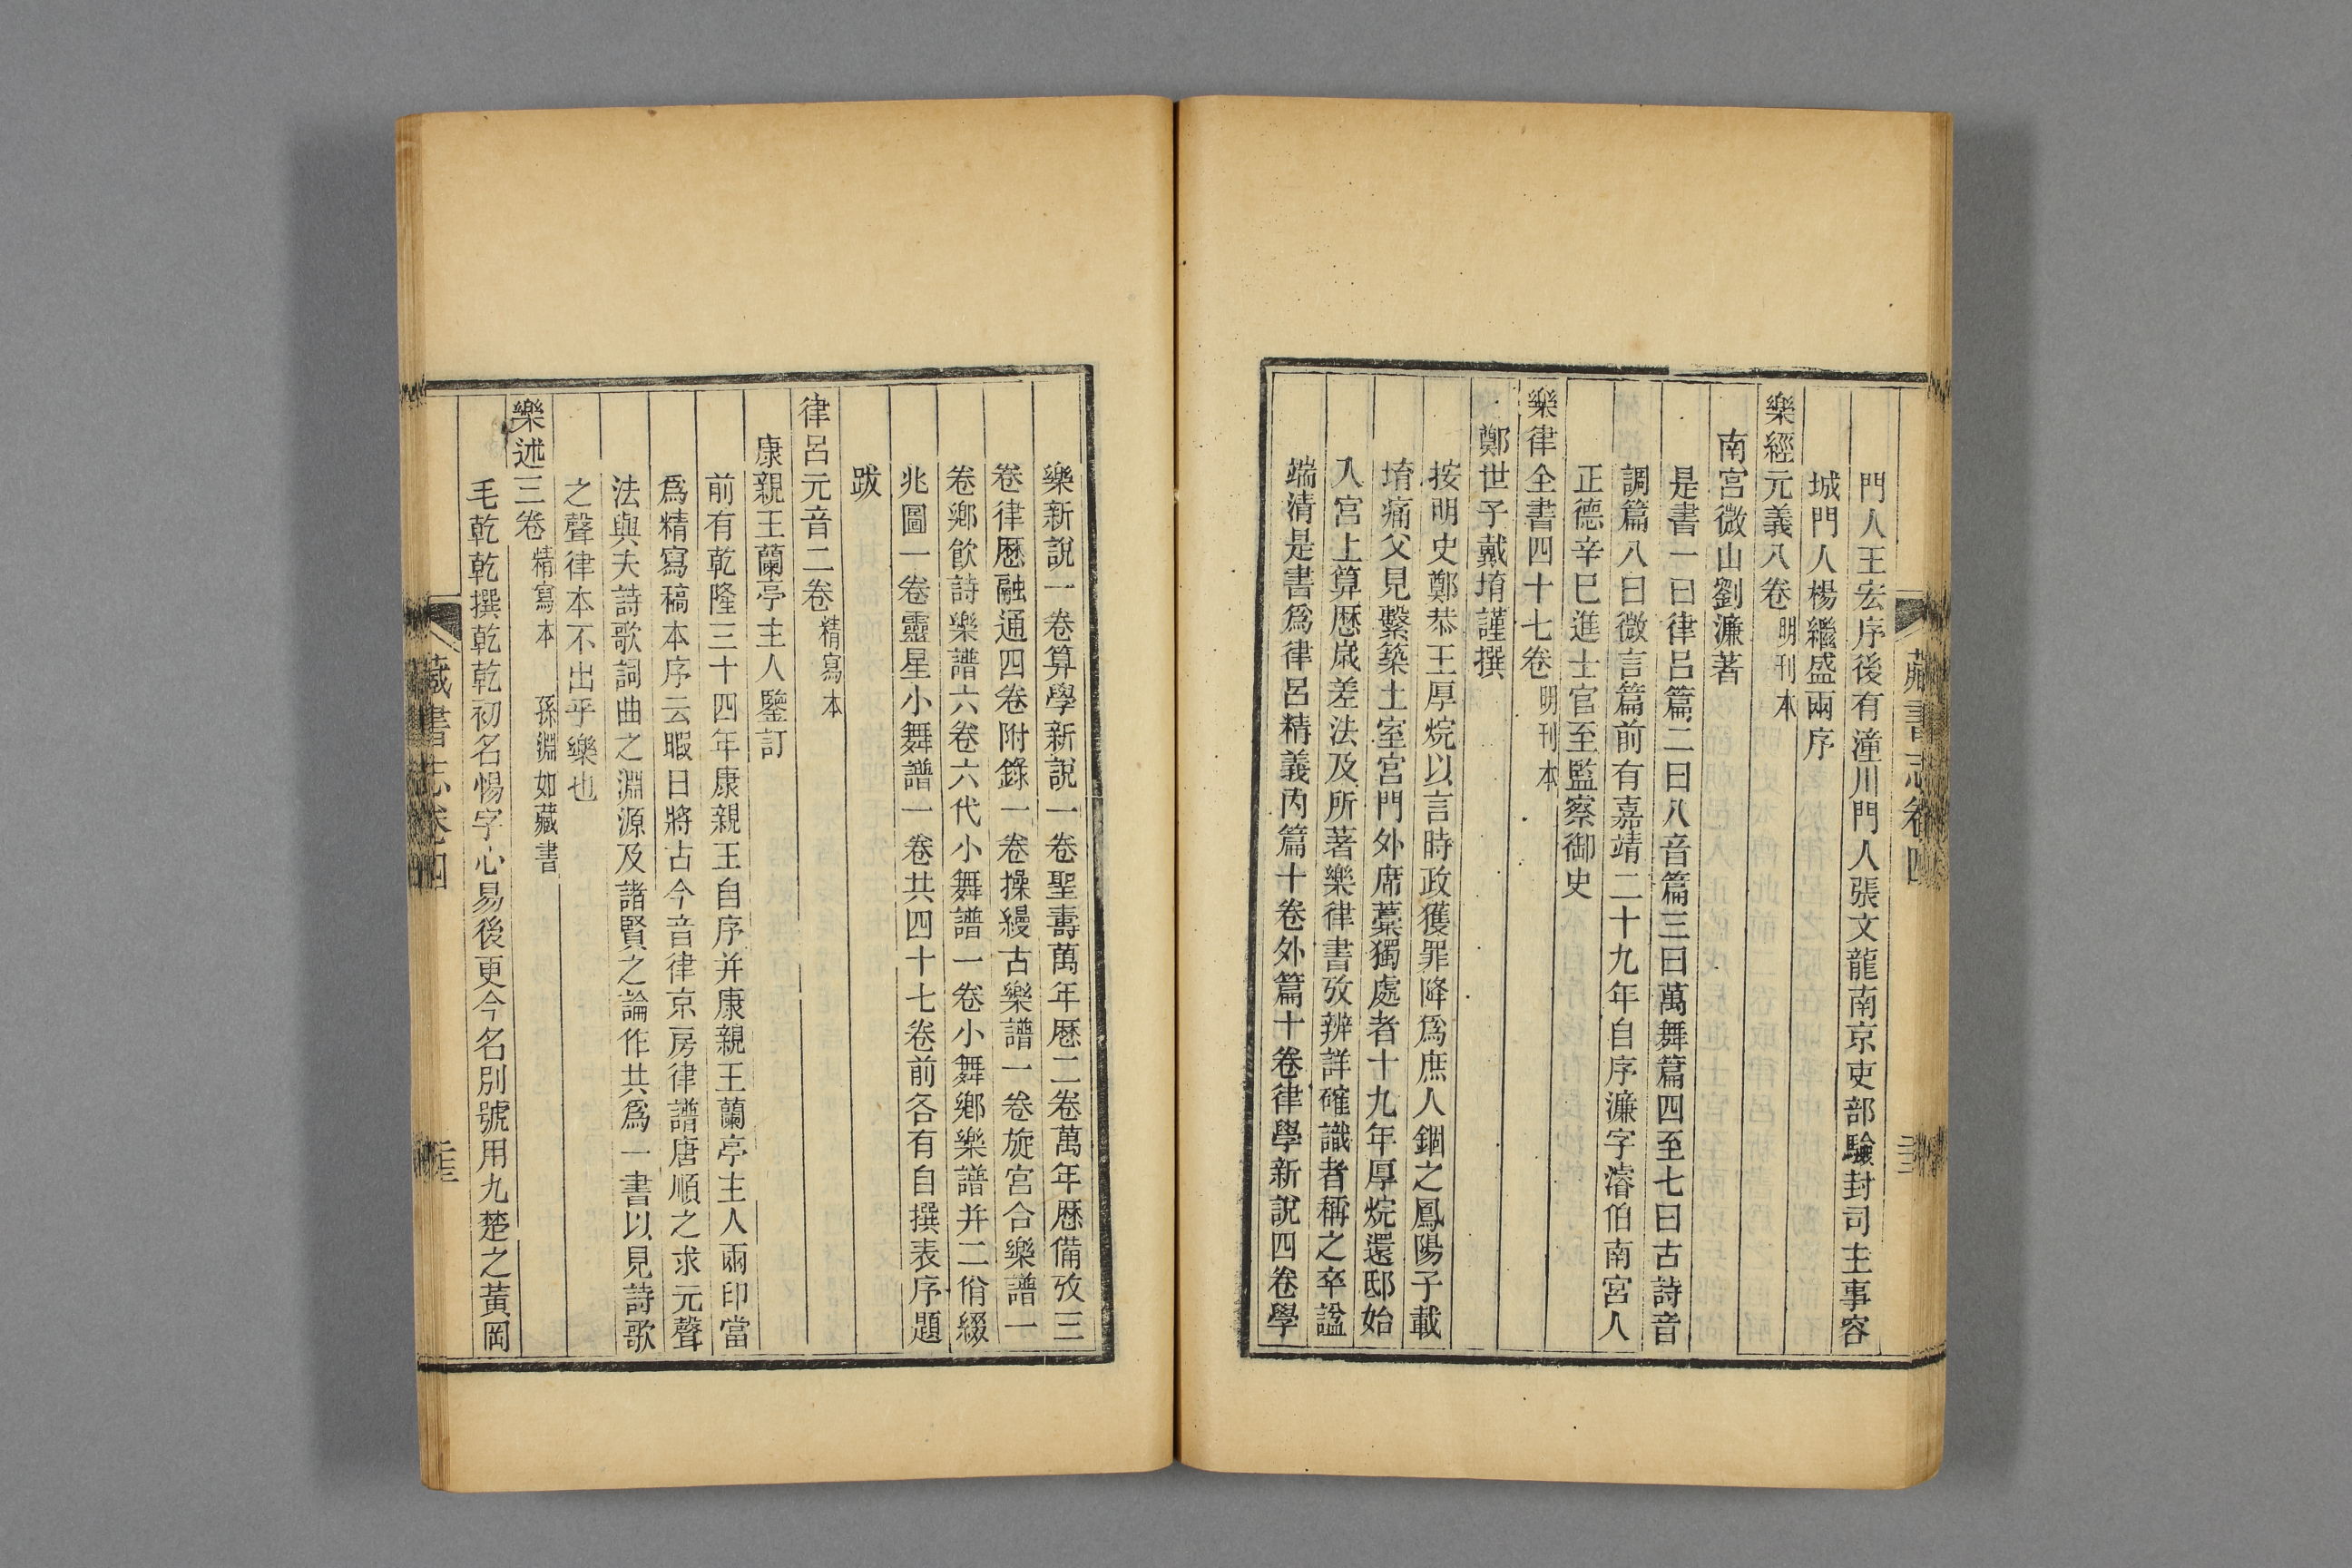 門人王宏序後有潼川門人張文龍南京吏部驗封司主事容
城門人楊繼盛兩序
樂經元義八卷 明刊本
南宮微山劉濂著
是書一曰律呂篇二曰八音篇三曰萬舞篇四至七曰古詩音
調篇八曰微言篇前有嘉靖二十九年自序濂字濬伯南宮人
正德辛巳進士官至監察御史
樂律全書四十七卷 明刊本
鄭世子戴堉謹撰
按明史鄭恭王厚烷以言時政獲罪降爲庶人錮之鳳陽子載
堉痛父見繫築土室宮門外席藁獨處者十九年厚烷還邸始
入宮上算厯嵗差法及所著樂律書攷辨詳確識者稱之卒諡
端清是書爲律呂精義內篇十卷外篇十卷律學新說四卷學
藏書志卷四
樂新說一卷算學新說一卷聖壽萬年厯二卷萬年厯備攷三
卷律厯融通四卷附錄一卷操縵古樂譜一卷旋宮合樂譜一
卷鄉飲詩樂譜六卷六代小舞譜一卷小舞鄉樂譜并二佾綴
兆圖一卷靈星小舞譜一卷共四十七卷前各有自撰表序題
跋
律呂元音二卷 精寫本
康親王蘭亭主人鑒訂
前有乾隆三十四年康親王自序并康親王蘭亭主人兩印當
爲精寫稿本序云暇日將古今音律京房律譜唐順之求元聲
法與夫詩歌詞曲之淵源及諸賢之論作共爲一書以見詩歌
之聲律本不出乎樂也
樂述三卷 精寫本 孫淵如藏書
毛乾乾撰乾乾初名惕字心易後更今名別號用九楚之黃岡
藏書志卷四